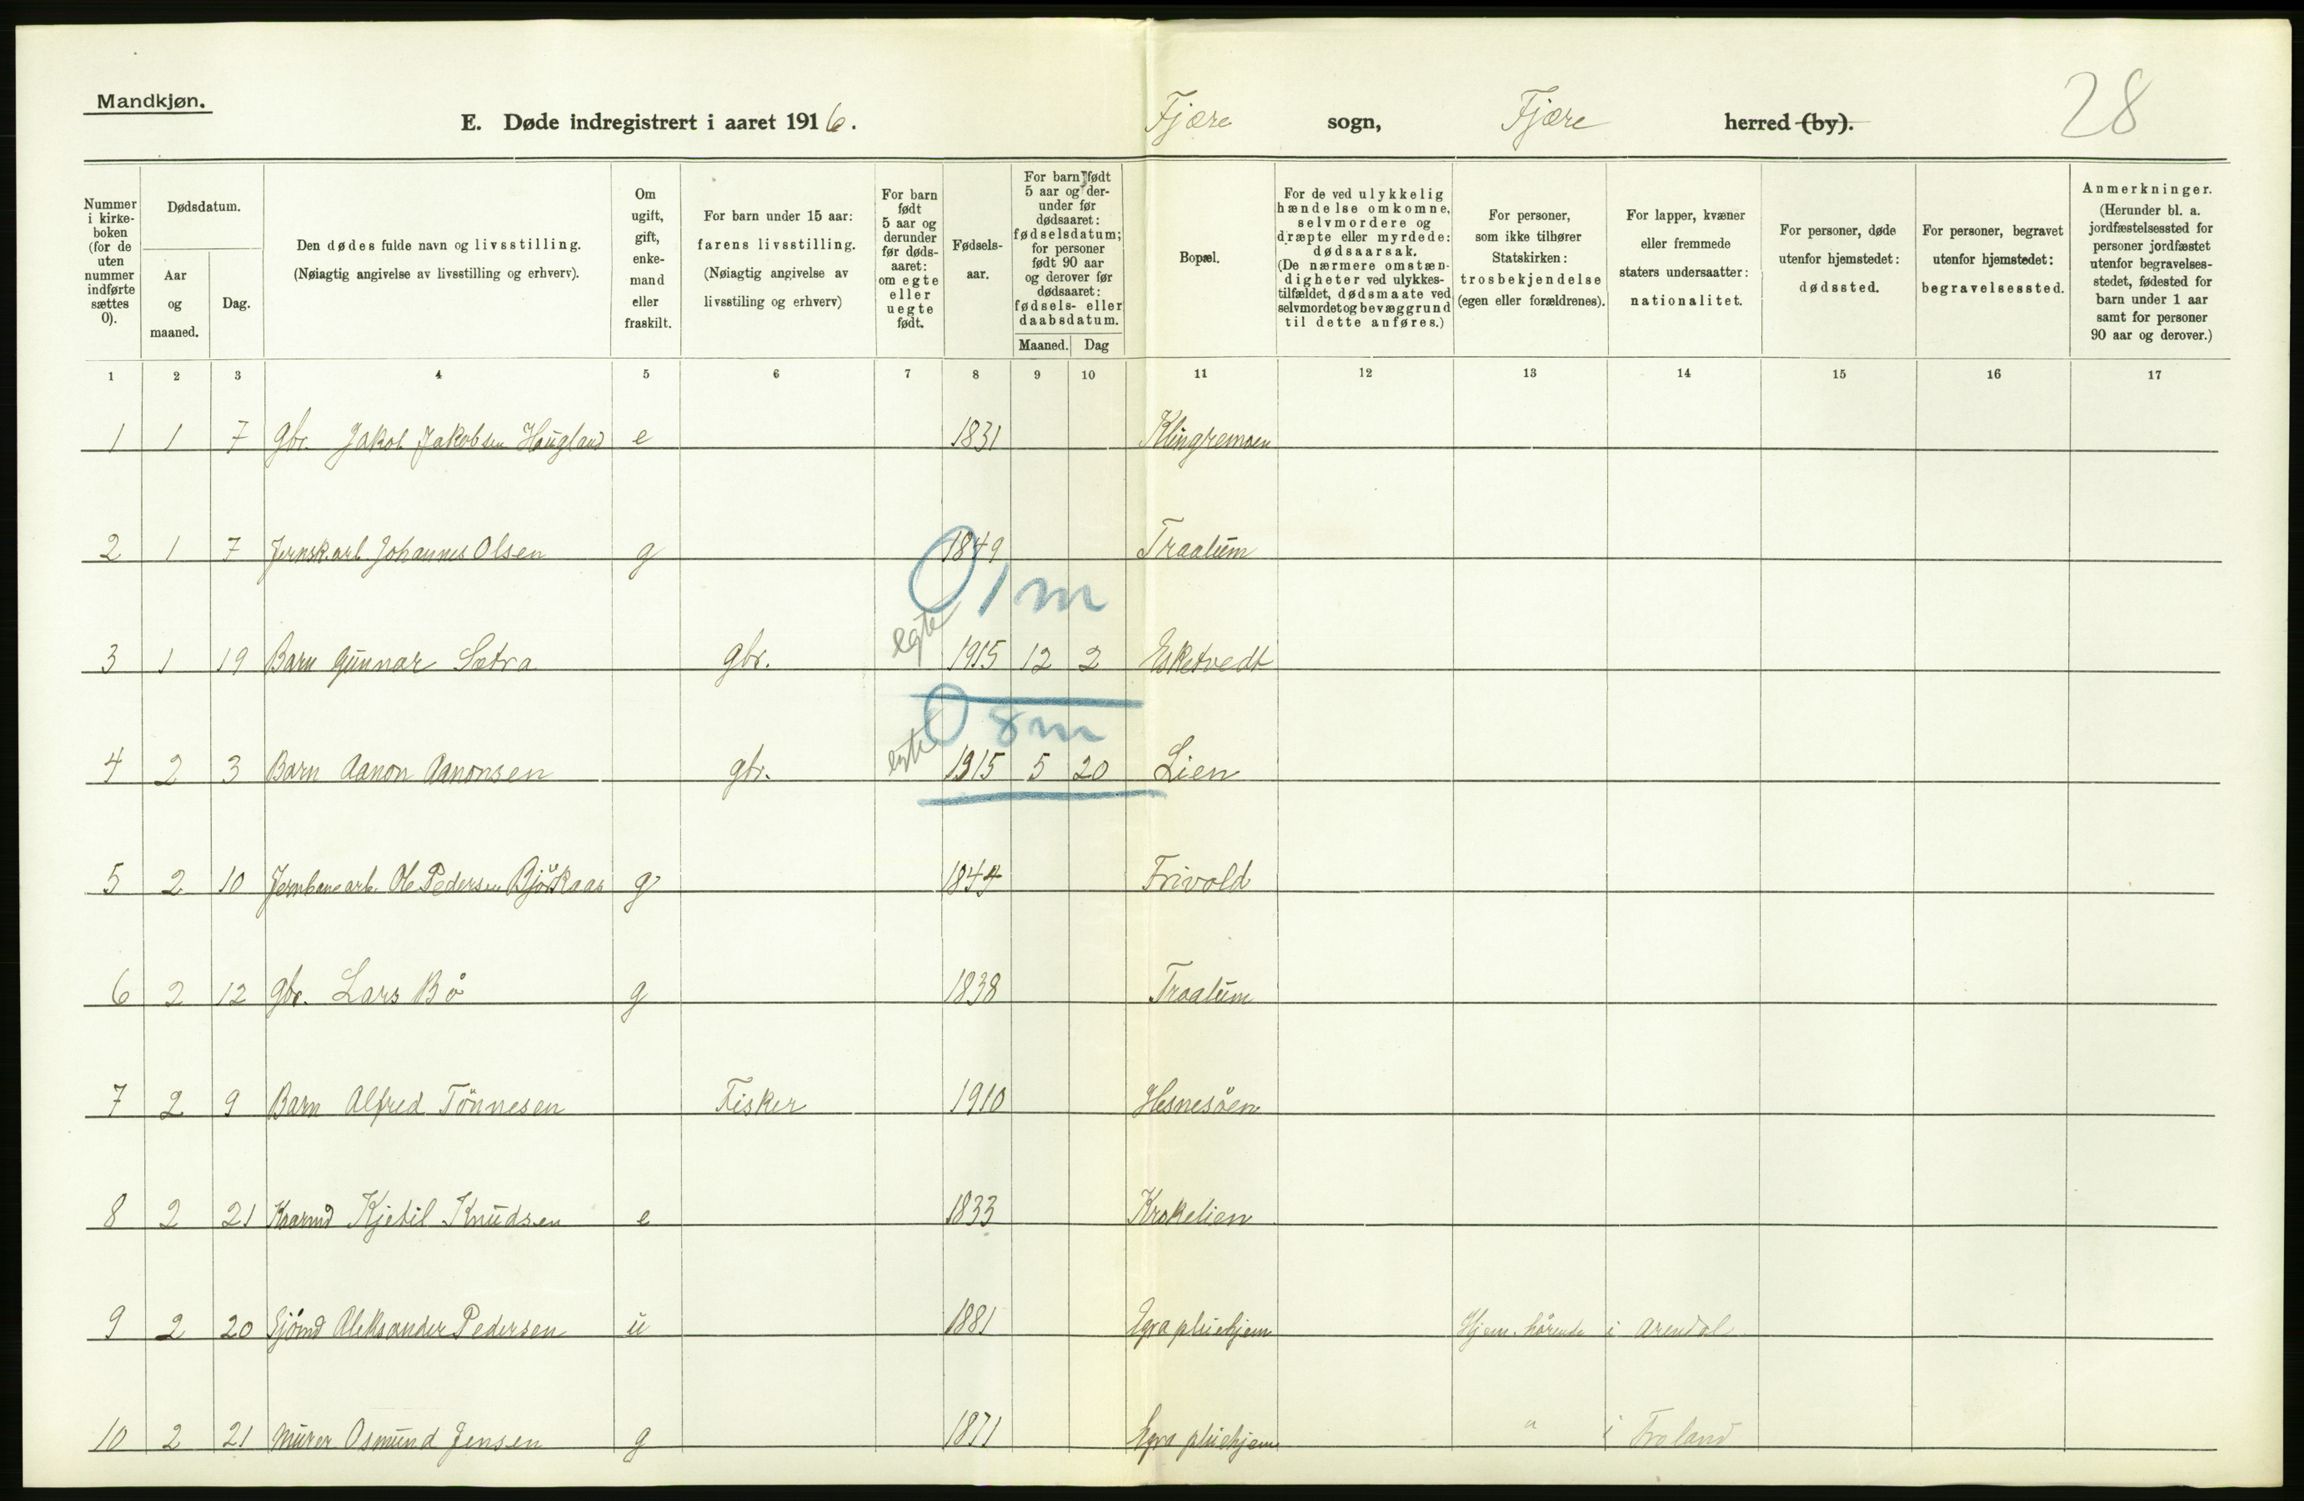 Mandkjøn.
E. Døde indregistrert i aaret 1916. Fjære sogn, Fjære herred (by). 28
Nummer i kirkeboken (for de uten nummer indførte sættes 0).
Dødsdatum.
Aar og maaned.
Dag.
Den dødes fulde navn og livsstilling.
(Nøiagtig angivelse av livsstilling og erhverv).
Om ugift, gift, enkemand eller fraskilt.
For barn under 15 aar: farens livsstilling.
(Nøiagtig angivelse av livsstiling og erhverv)
For barn født 5 aar og derunder før dødsaaret: om egte eller uegte født.
Fødselsaar.
For barn født 5 aar og derunder før dødsaaret: fødselsdatum; for personer født 90 aar og derover før dødsaaret: fødsels- eller daabsdatum.
Maaned. Dag
Bopæl.
For de ved ulykkelig hændelse omkomne, selvmordere og dræpte eller myrdede: dødsaarsak.
(De nærmere omstændigheter ved ulykkestilfældet, dødsmaate ved selvmordet og bevæggrund til dette anføres.)
For personer, som ikke tilhører Statskirken: trosbekjendelse (egen eller forældrenes).
For lapper, kvæner eller fremmede staters undersaatter: nationalitet.
For personer, døde utenfor hjemstedet: dødssted.
For personer, begravet utenfor hjemstedet: begravelsessted.
Anmerkninger.
(Herunder bl. a. jordfæstelsessted for personer jordfæstet utenfor begravelsesstedet, fødested for barn under 1 aar samt for personer 90 aar og derover.)
1 2 3 4 5 6 7 8 9 10 11 12 13 14 15 16 17
1 1 7 Gbr. Jakob Jakobsen Hougland e 1831 Klingremoen
2 1 7 Jernsk.arb. Johannes Olsen g 1849 Traalum
0 1 m
3 1 19 Barn Gunnar Sætra gbr. egte 1915 12 2 Esketvedt
0 8 m
4 2 3 Barn Aanon Aanonsen gbr. egte 1915 5 20 Lien
5 2 10 Jernbanearb. Ole Pedersen Bjørkaas g 1844 Frivold
6 2 12 gbr. Lars Bö g 1838 Traalum
7 2 9 Barn Alfred Tönnesen Fisker 1910 Hesnesöen
8 2 21 Kjetil Knudsen e 1833 Krokelien
9 2 20 Sjömd Aleksander Pedersen u 1881 Egra pleiehjem Hjem. hörende i Arendal
10 2 21 Murer Osmund Jensen g 1871 Egra pleiehjem " i Froland